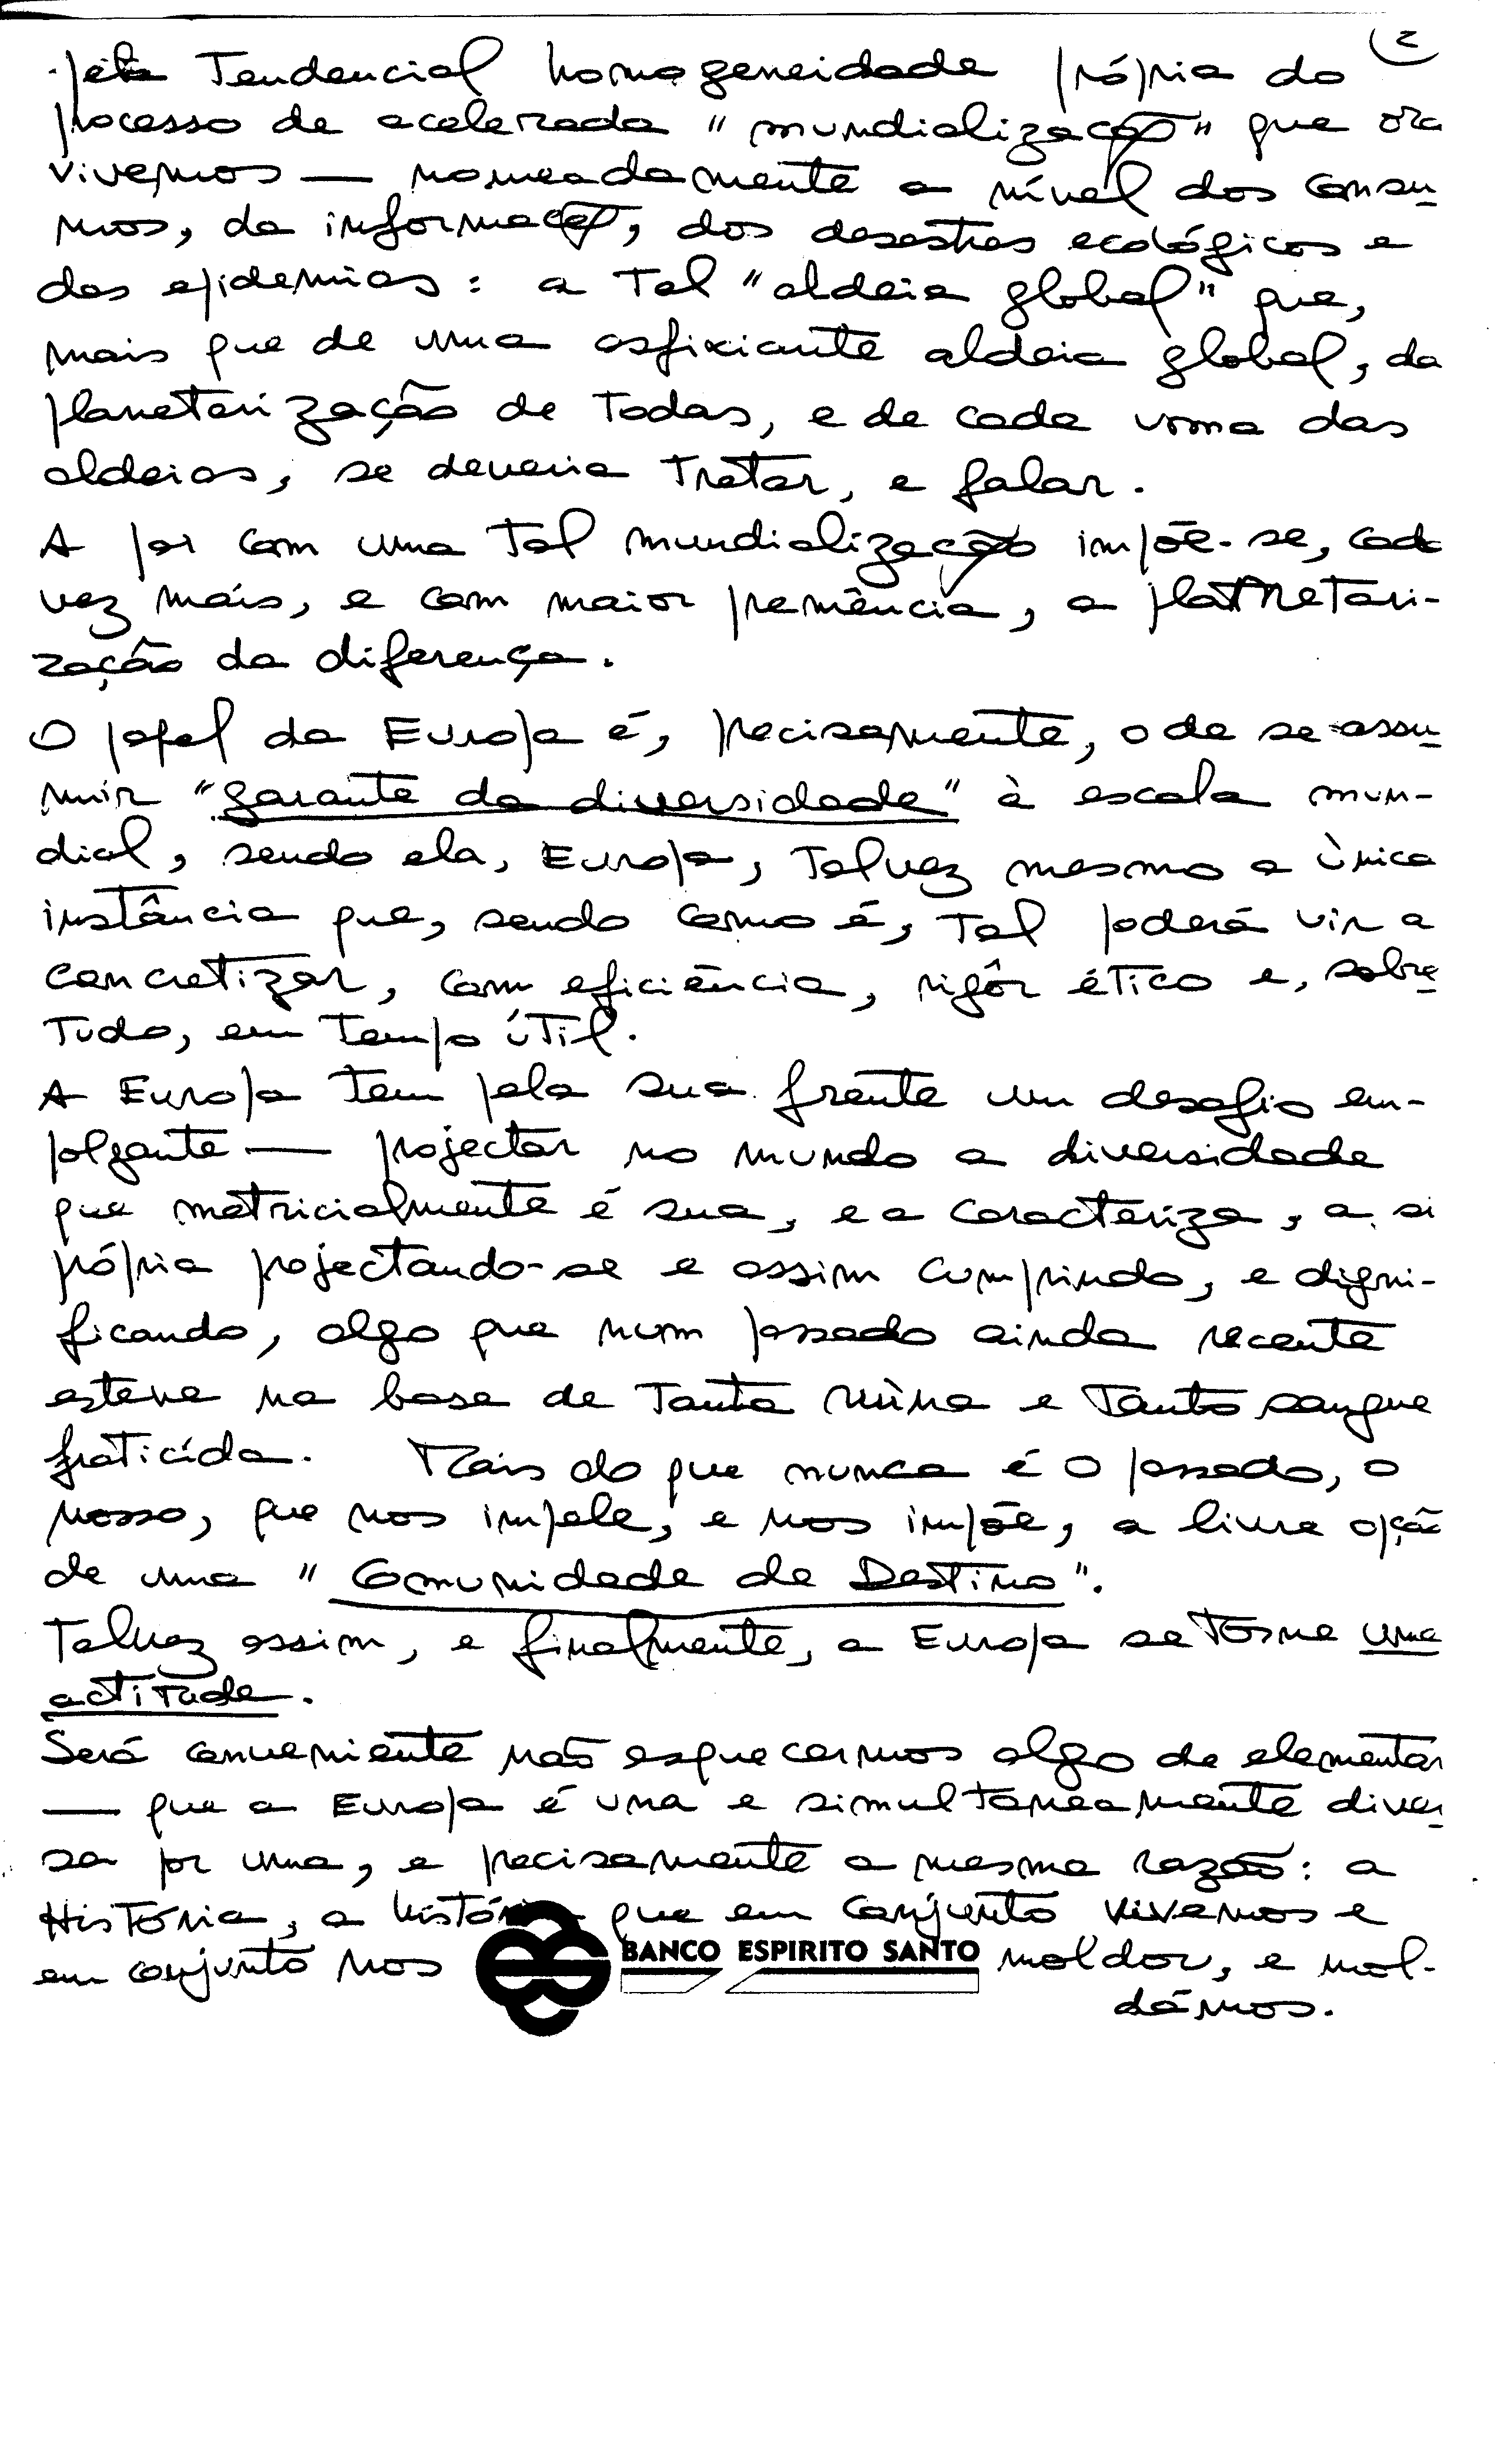 2
pela Tendencial homogeneidade própria do
processo de acelerada "mundialização" que ora
vivemos — nomeadamente a nível dos consu-
mos, da informação, dos desastres ecológicos e
das epidemias: a Tal "aldeia global" que,
mais que de uma asfixiante aldeia global, da
planetarização de Todas, e de cada uma das
aldeias, se deveria Tratar, e falar.
A par com uma Tal mundialização impõe-se, cada
vez mais, e com maior premência, a planetari-
zação da diferença.
O papel da Europa é, precisamente, o de se assu-
mir "garante da diversidade" à escala mun-
dial, sendo ela, Europa, Talvez mesmo a única
instância que, sendo como é, Tal poderá vir a
concretizar, com eficiência, rigôr éTico e, sobre-
Tudo, em Tempo úTil.
A Europa Tem pela sua frente um desafio em-
polgante — projectar no mundo a diversidade
que matricialmente é sua, e a caracteriza, a si
própria projectando-se e assim cumprindo, e digni-
ficando, algo que num passado ainda recente
esteve na base de Tanta ruína e Tanto sangue
fraticída. Mais do que nunca é o passado, o
nosso, que nos impele, e nos impõe, a livre opção
de uma "Comunidade de Destino".
Talvez assim, e finalmente, a Europa se Torne uma
actitude.
Será conveniente não esquecermos algo de elementar
— que a Europa é una e simultaneamente diver-
sa por uma, e precisamente a mesma razão: a
HisTória, a história que em conjunto vivemos e
em conjunto nos BANCO ESPIRITO SANTO moldou, e mol-
dámos.